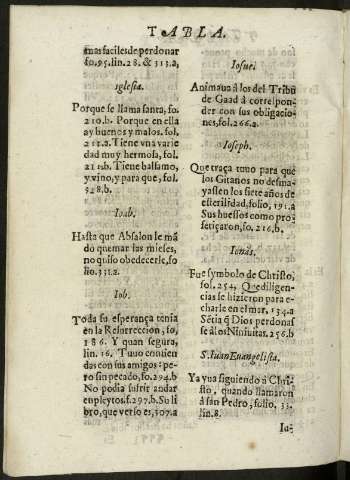 TABLA.
mas faciles de perdonar
fo.95.lin.28. & 313.a,
Iglesia.
Porque se llama santa, fo.
210.b. Porque en ella
ay buenos y malos. fol.
211.a. Tiene vna varie
dad muy hermosa, fol.
211.b. Tiene balsamo,
y vino, y para que, fol.
328.b.
Ioab.
Hasta que Absalon le mã
dò quemar las mieses,
no quiso obedecerle, fo
lio.331.2.
Iob.
Toda su esperança tenia
en la Resurreccion, fo,
186. Y quan segura,
lin.16. Tuuo contien
das con sus amigos: pe-
ro sin pecado, fo.294.b
No podia sufrir andar
en pleytos. f.297.b. Su li
bro, que verso es, 309.a
Iosue.
Animaua â los del Tribu
de Gaad à correspon-
der con sus obligacio-
nes, fol.266.a.
Ioseph.
Que traça tuuo para que
los Gitanos no desma-
yassen los siete años de
esterilidad, folio, 191.a
Sus huessos como pro-
fetiçaron, fo.216.b.
Ionàs.
Fue symbolo de Christo,
fol.254, Que diligen-
cias se hizieron para e-
charle en el mar, 134.a
Sẽtia q̃ Dios perdonas
se à los Niniuitas. 256.b
S. Iuan Euangelista.
Ya yua siguiendo à Chri-
sto, quando llamaron
à san Pedro, folio, 33.
lin.8.
Iu-